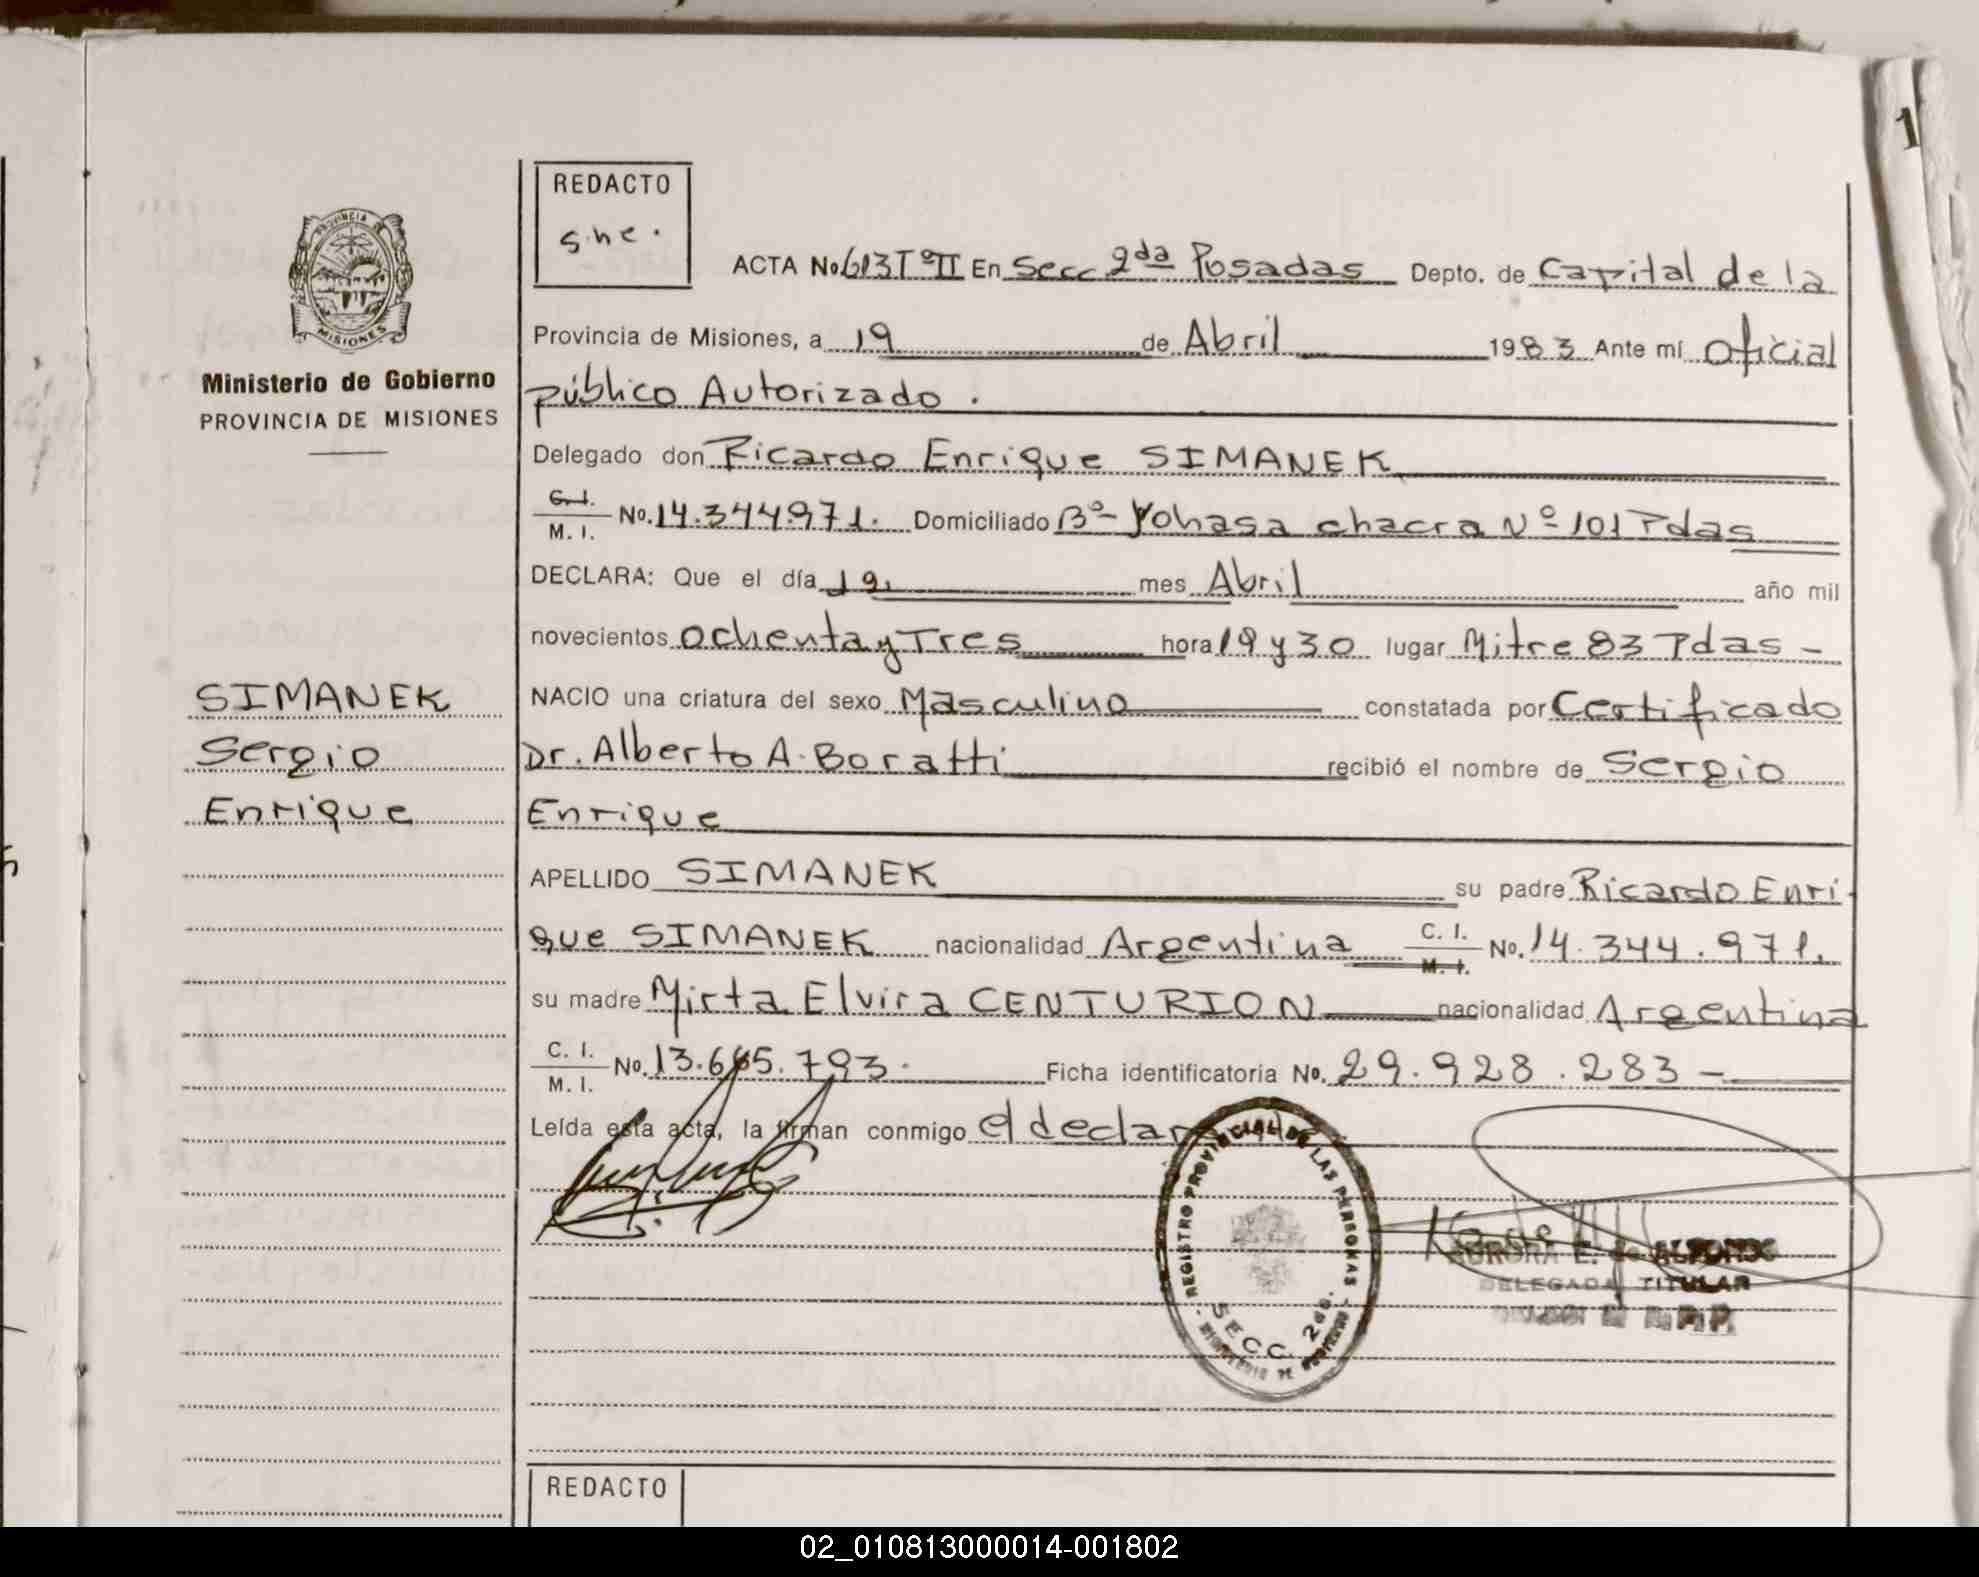 PROVINCIA DE
MISIONES
Ministerio de Gobierno
PROVINCIA DE MISIONES
SIMANEK
Sergio
Enrique
REDACTO
ACTA No. 613 Tº II En Secc 2da Posadas Depto. de Capital de la
Provincia de Misiones, a 19 de Abril 1983 Ante mí Oficial
público Autorizado.
Delegado don Ricardo Enrique SIMANEK
C. I. / M. I. No. 14.344.971. Domiciliado Bº Yohasa chacra Nº 101 Pdas
DECLARA: Que el día 19 mes Abril año mil
novecientos Ochenta y Tres hora 19 y 30 lugar Mitre 83 Pdas -
NACIO una criatura del sexo Masculino constatada por Certificado
Dr. Alberto A. Boratti recibió el nombre de Sergio
Enrique
APELLIDO SIMANEK su padre Ricardo Enri-
que SIMANEK nacionalidad Argentina C. I. / M. I. No. 14.344.971.
su madre Mirta Elvira CENTURION nacionalidad Argentina
C. I. / M. I. No. 13.665.793. Ficha identificatoria No. 29.928.283 -
Leída esta acta, la firman conmigo el
REGISTRO PROVINCIAL DE LAS PERSONAS
SECC. 2da.
AURORA E. de
DELEGADA TITULAR
REDACTO
02_010813000014-001802